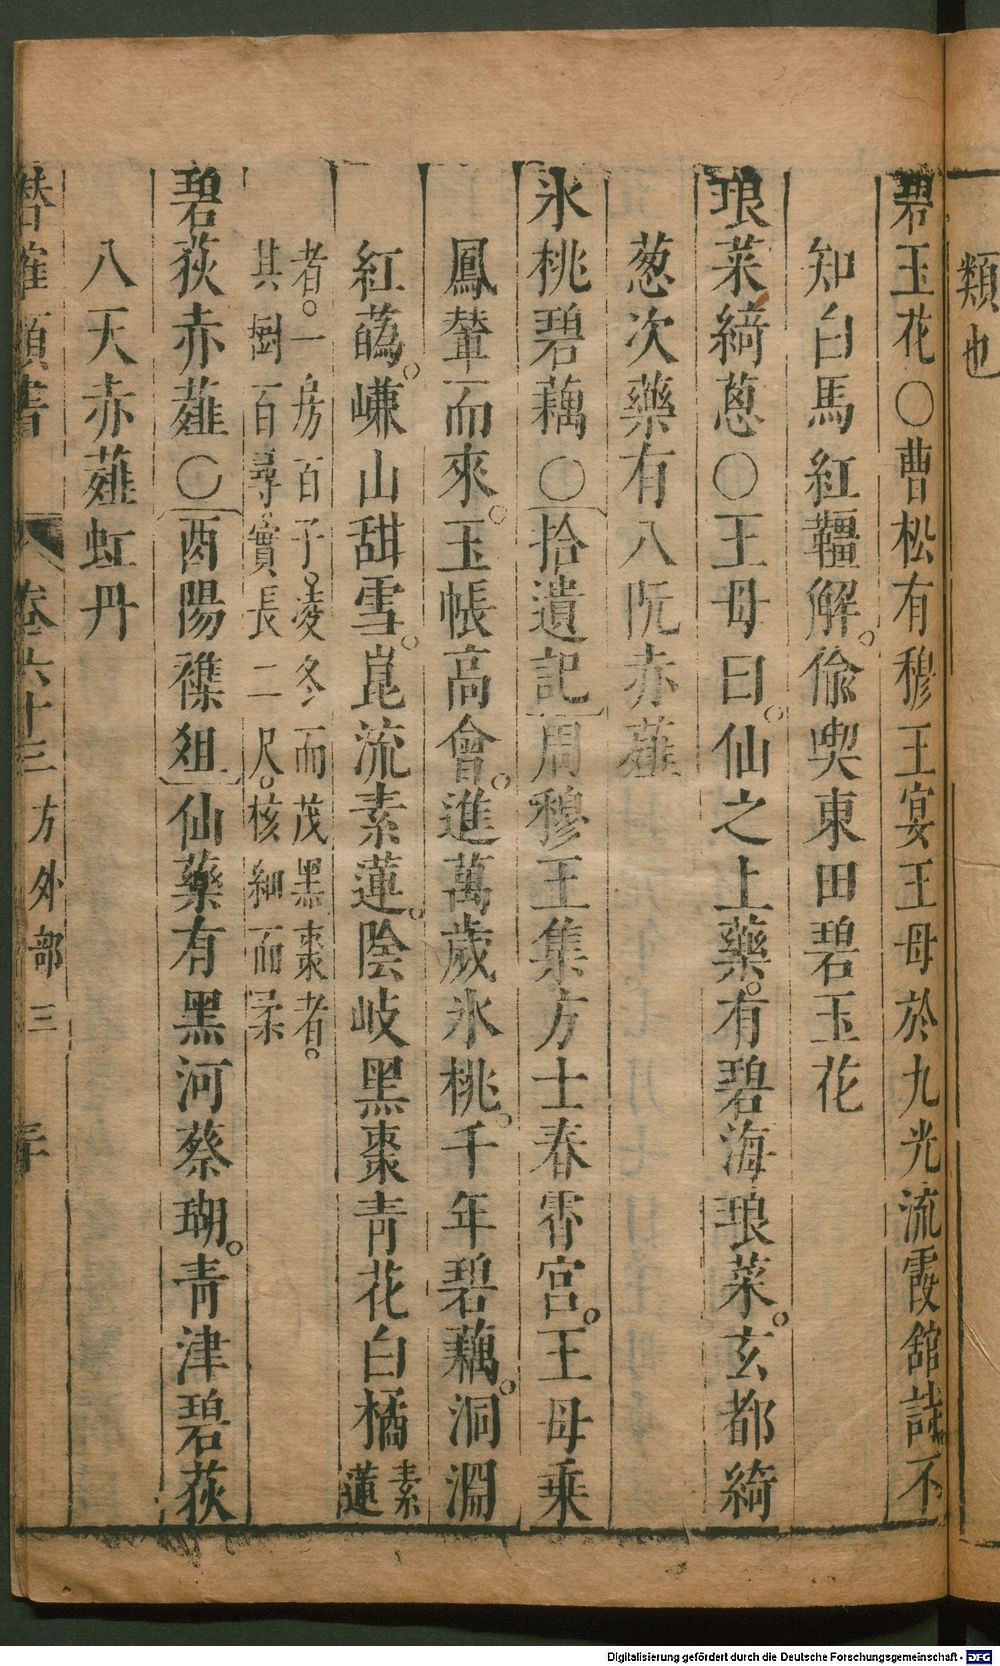 類也
碧玉花○曹松有穆王宴王母於九光流霞舘詩不
知白馬紅韁解偸喫東田碧玉花
琅菜綺蔥○王母曰仙之上藥有碧海琅菜玄都綺
葱次藥有八阮赤薤
氷桃碧藕○拾遺記周穆王集方士春霄宮王母乗
鳳輦而來玉帳高會進萬歲氷桃千年碧藕洞淵
紅蘤嵰山甜雪崑流素蓮陰岐黑棗青花白橘素蓮
者一房百子凌冬而茂黑棗者
其樹百尋實長二尺核細而柔
碧荻赤薤○酉陽襍俎仙藥有黑河蔡瑚青津碧荻
八天赤薤虹丹
潛確類書 卷六十三 方外部三
Digitalisierung gefördert durch die Deutsche Forschungsgemeinschaft - DFG